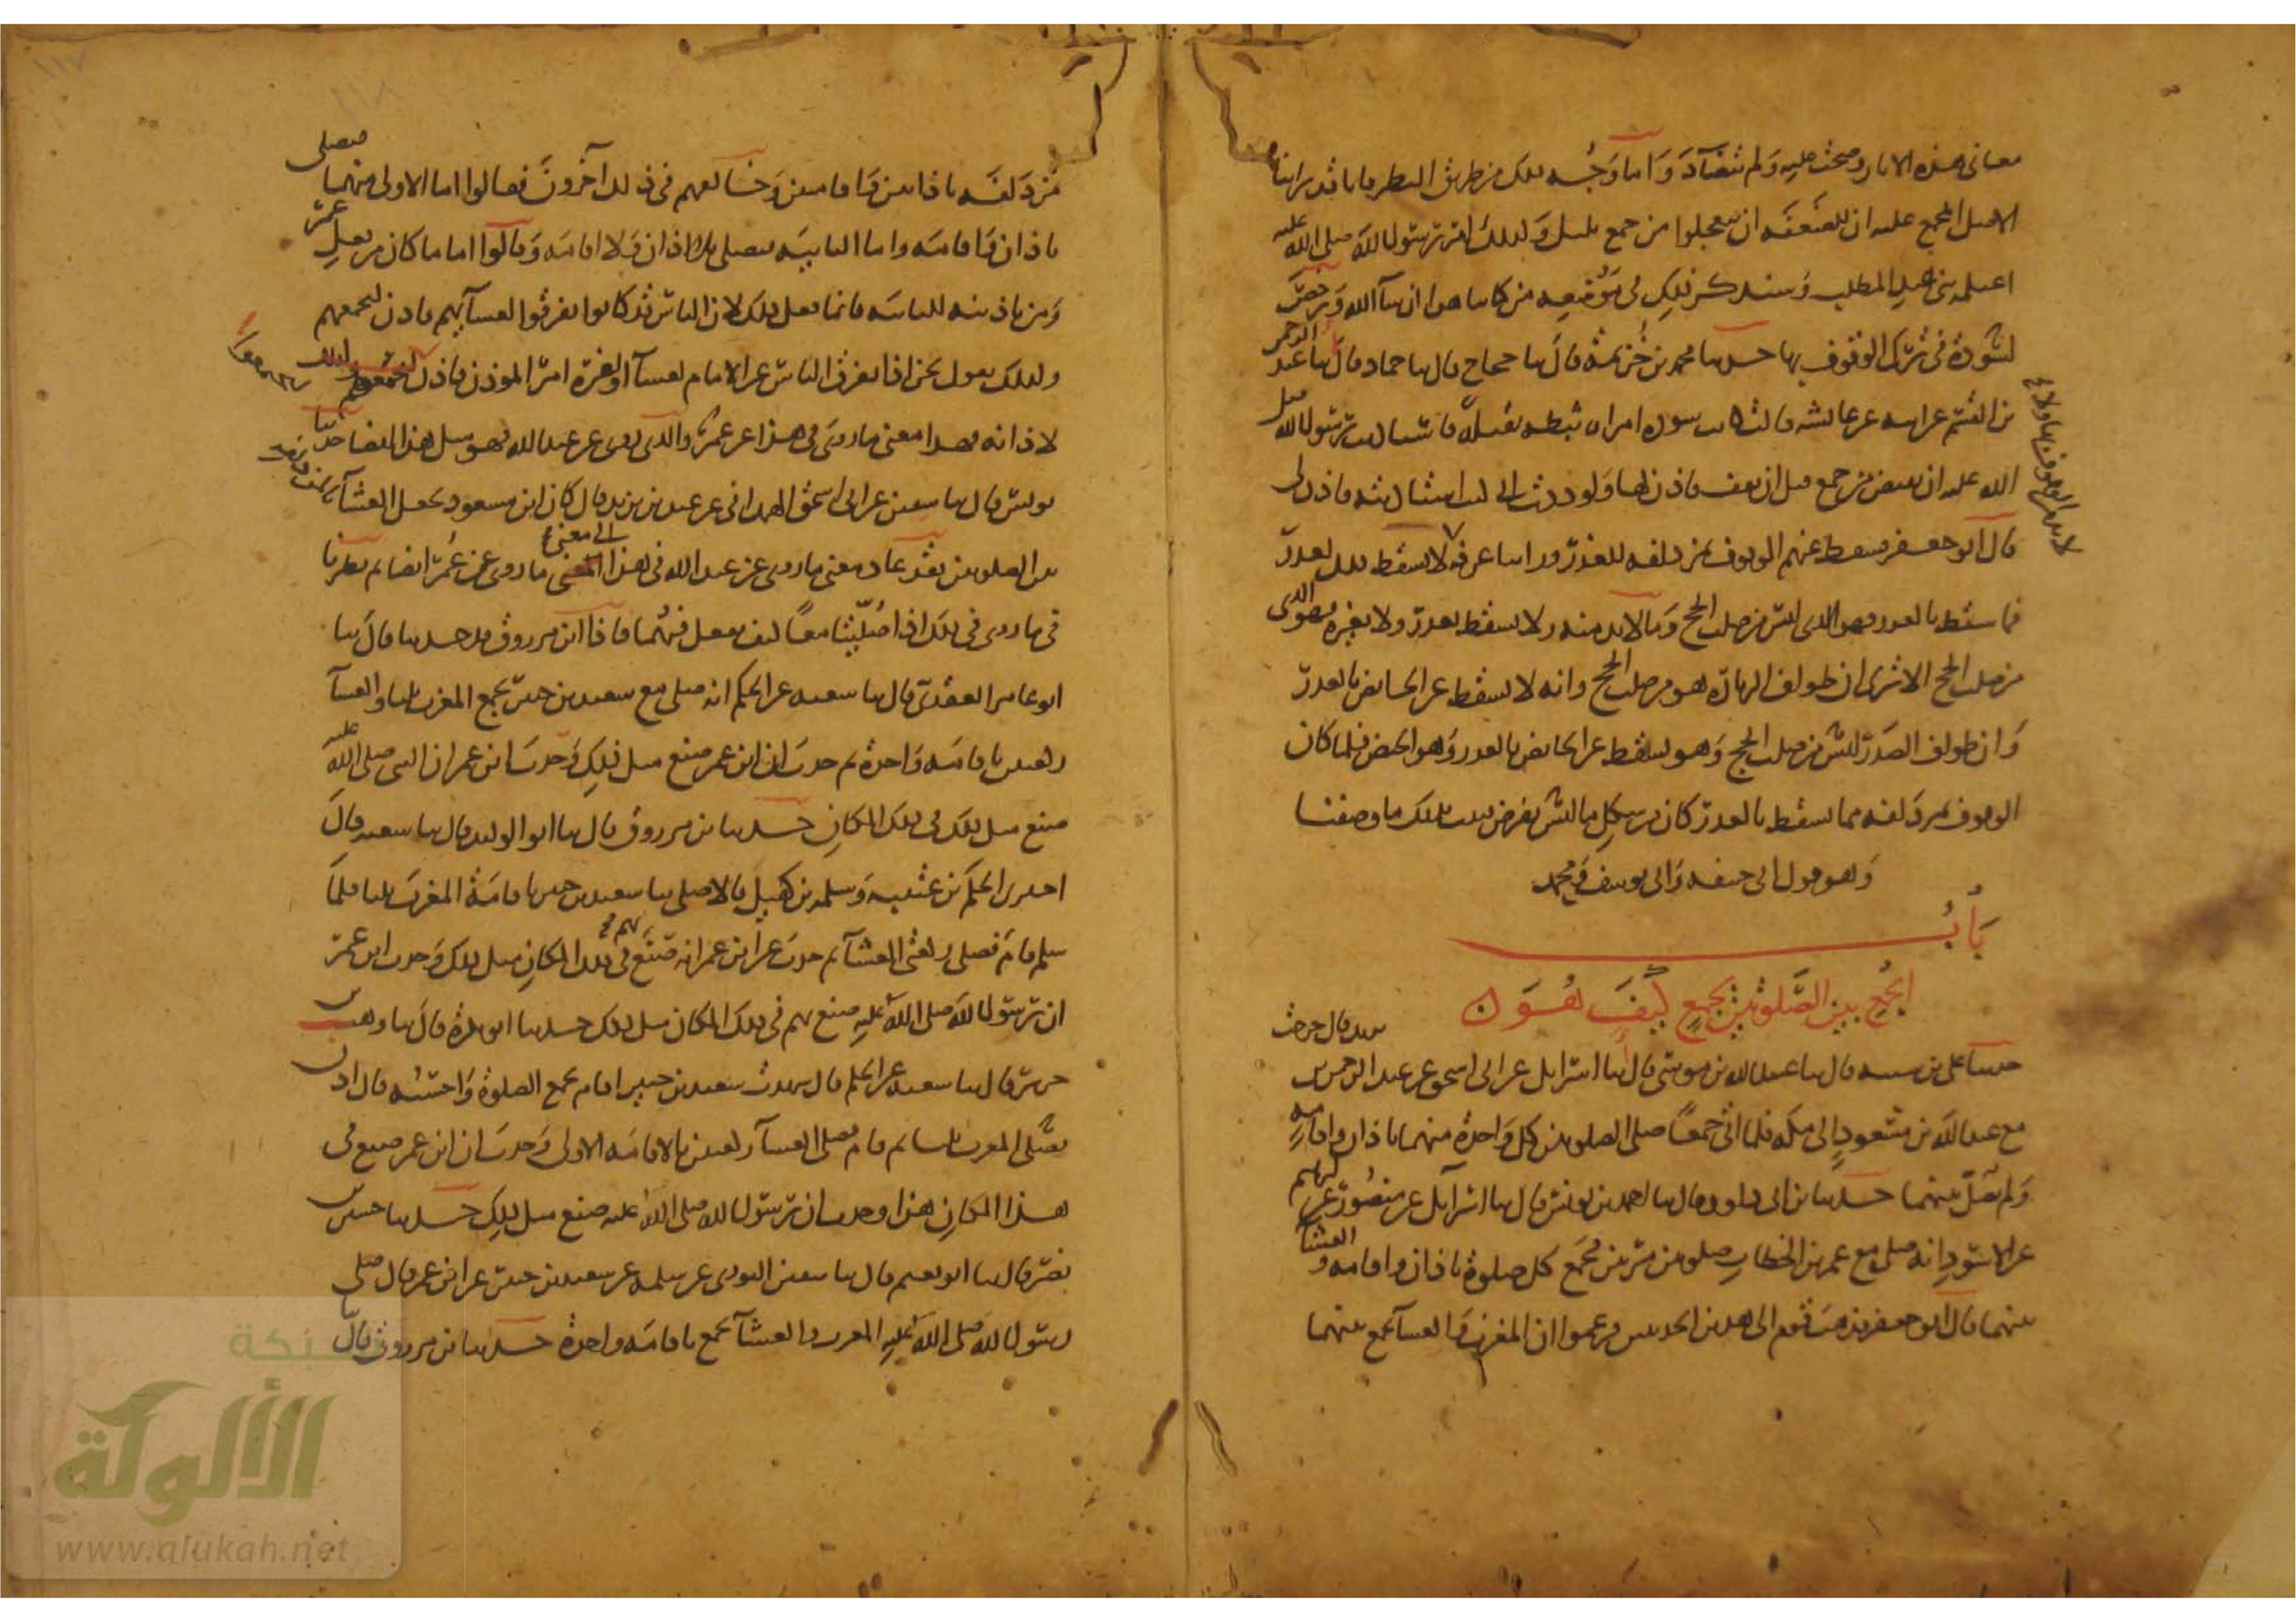 معاني هذه الاثار وصحت عليه ولم تتضاد واما وجه ذلك من طريق النظر فانا قد راينا
الاصل المجمع عليه ان للضعفة ان يتعجلوا من جمع بليل وكذلك امر رسول الله صلى الله عليه
اغيلمة بني عبد المطلب وسنذكر ذلك في موضعه من كتابنا هذا ان شا الله ورخص
لسودة في ترك الوقوف بها حدثنا محمد بن خزيمة قال ثنا حجاج قال ثنا حماد قال ثنا عبد الرحمن
بن القسم عن ابيه عن عايشة قالت كانت سودة امراة ثبطة ثقيلة فاستاذنت رسول الله صلى
الله عليه ان تفيض من جمع قبل ان تقف فاذن لها ولوددت اني كنت استاذنته فاذن لي
قال ابو جعفر فسقط عنهم الوقوف بمزدلفة للعذر وراينا عرفة لا يسقط ذلك لعذر
فما سقط بالعذر فهو الذي ليس من صلب الحج وما لا بد منه ولا يسقط بعذر ولا بغيره فهو الذي
من صلب الحج الا ترى ان طواف الزيارة هو من صلب الحج وانه لا يسقط عن الحايض بالعذر
وان طواف الصدر ليس من صلب الحج وهو يسقط عن الحايض بالعذر وهو الحيض فلما كان
الوقوف بمزدلفة مما يسقط بالعذر كان من شكل ما ليس بفرض فثبت بذلك ما وصفنا
وهو قول ابي حنيفة وابي يوسف ومحمد
باب
الجمع بين الصلوتين بجمع كيف هو
حدثنا علي بن شيبة قال ثنا عبيد الله بن موسى قال انا اسرائيل عن ابي اسحق عن عبد الرحمن بن يزيد قال خرجت
مع عبد الله بن مسعود الى مكة فلما اتى جمعا صلى الصلوتين كل واحدة منهما باذان واقامة
ولم يصل بينهما حدثنا بن ابي داود قال ثنا احمد بن يونس قال ثنا اسرائيل عن منصور عن ابرهيم
عن الاسود انه صلى مع عمر بن الخطاب صلوتين مرتين بجمع كل صلوة باذان واقامة والعشا
بينهما قال ابو جعفر فذهب قوم الى هذين الحديثين فزعموا ان المغرب والعشا يجمع بينهما
مزدلفة باذانين واقامتين وخالفهم في ذلك آخرون فقالوا اما الاولى منهما فيصلى
باذان واقامة واما الثانية فيصلى بلا اذان ولا اقامة وقالوا اما ما كان من فعل عمر
ومن تاذينه للثانية فانما فعل ذلك لان الناس قد كانوا تفرقوا لعشايهم فاذن ليجمعهم
وكذلك نقول نحن اذا تفرق الناس عن الامام لعشا او لغيره امر المؤذن فاذن ليجتمعوا
لاذانه فهذا معنى ما روي في هذا عن عمر والذي روي عن عبد الله فهو مثل هذا ايضا حدثنا
يونس قال ثنا سفين عن ابي اسحق الهمداني عن عبد الرحمن بن يزيد قال كان ابن مسعود يجعل العشا
بين الصلوتين فقد عاد معنى ما روي عن عبد الله في هذا الى معنى ما روي عن عمر ايضا ثم نظرنا
في ما روي في ذلك اذا صليتا معا كيف يفعل فيهما فاذا ابن مرزوق قد حدثنا قال ثنا
ابو عامر العقدي قال ثنا شعبة عن الحكم انه صلى مع سعيد بن جبير بجمع المغرب ثلثا والعشا
ركعتين باقامة واحدة ثم حدث ان ابن عمر صنع مثل ذلك وحدث ابن عمر ان النبي صلى الله عليه
صنع مثل ذلك في ذلك المكان حدثنا بن مرزوق قال ثنا ابو الوليد قال ثنا شعبة قال
اخبرني الحكم بن عتيبة وسلمة بن كهيل قالا صلى بنا سعيد بن جبير باقامة المغرب ثلثا فلما
سلم قام فصلى ركعتي العشا ثم حدث عن ابن عمر انه صنع بهم في ذلك المكان مثل ذلك وحدث ابن عمر
ان رسول الله صلى الله عليه صنع بهم في ذلك المكان مثل ذلك حدثنا ابو بكرة قال ثنا وهب بن
جرير قال ثنا شعبة عن الحكم قال شهدت سعيد بن جبير اقام بجمع الصلوة واحسبه قال اذن
فصلى المغرب ثلثا ثم قام فصلى العشا ركعتين بالاقامة الاولى وحدث ان ابن عمر صنع في
هذا المكان هذا وحدث ان رسول الله صلى الله عليه صنع مثل ذلك حدثنا حسين بن
نصر قال ثنا ابو نعيم قال ثنا سفين الثوري عن سلمة عن سعيد بن جبير عن ابن عمر قال صلى
رسول الله صلى الله عليه المغرب والعشا بجمع باقامة واحدة حدثنا بن مرزوق قال
شبكة
الألوكة
www.alukah.net